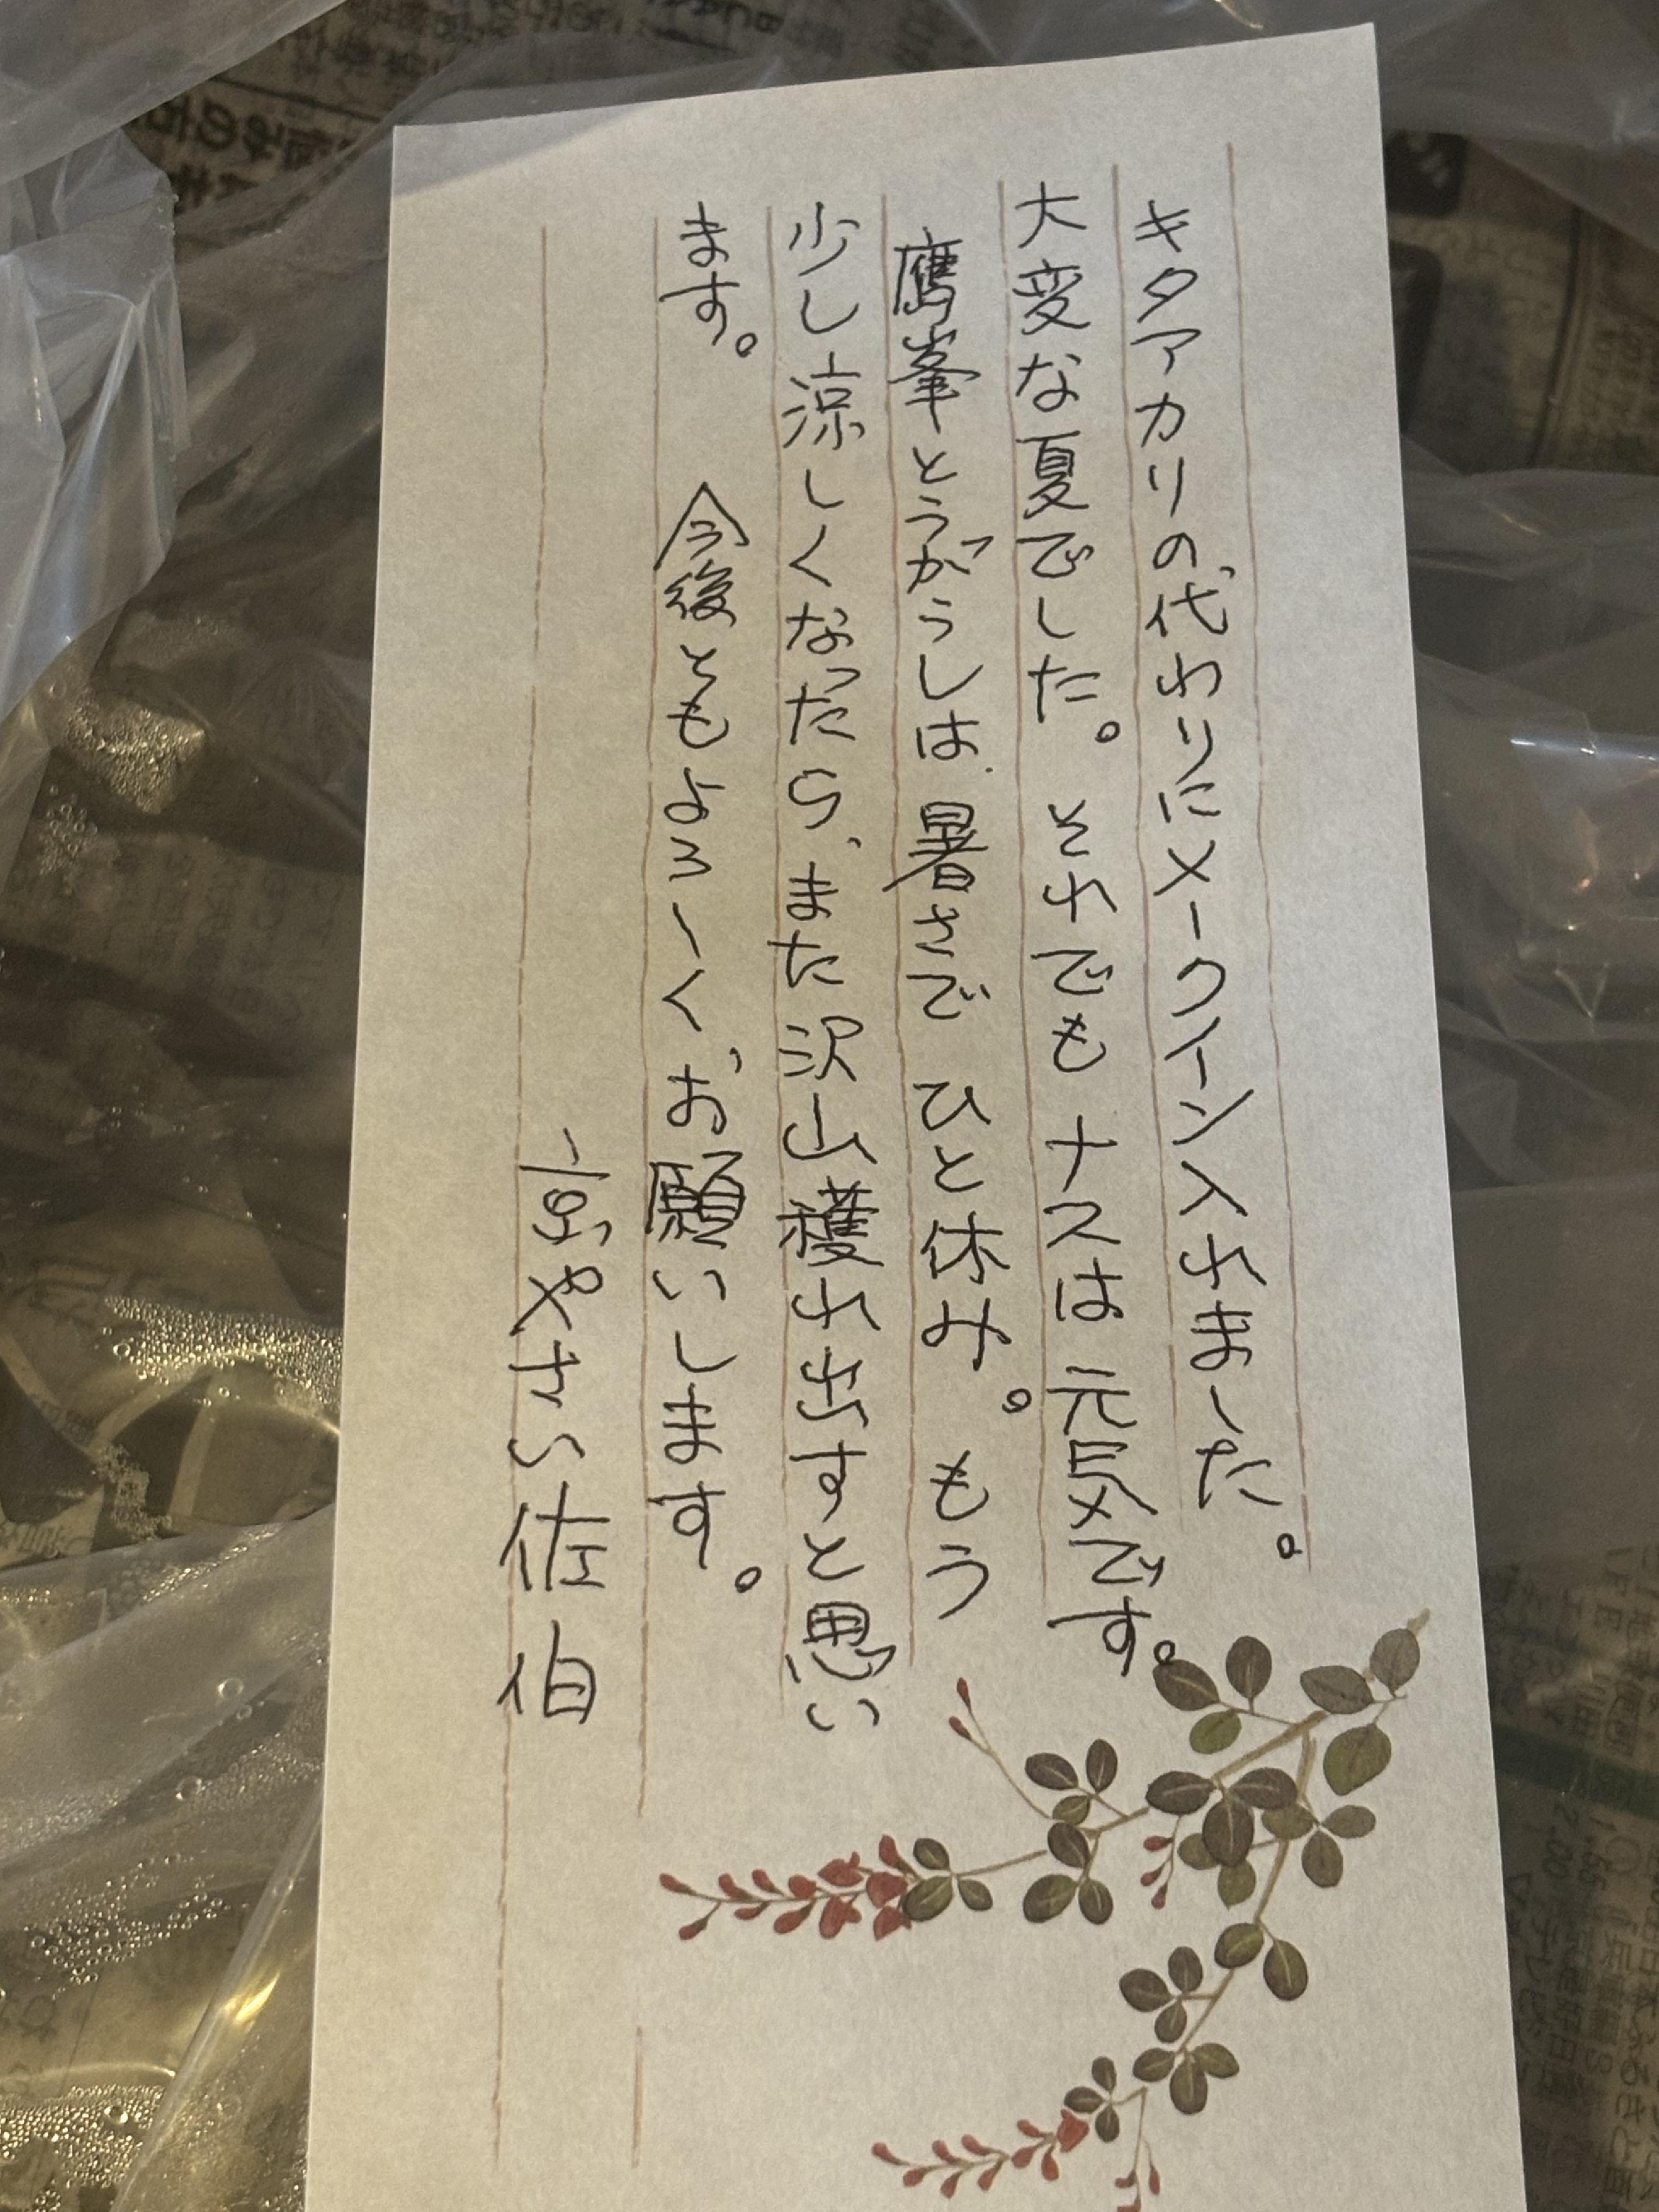 キタアカリの代わりにメークイン入れました。
大変な夏でした。それでもナスは元気です。
鷹峯とうがらしは暑さでひと休み。もう
少し涼しくなったら、また沢山穫れ出すと思い
ます。 今後ともよろしくお願いします。
佐伯